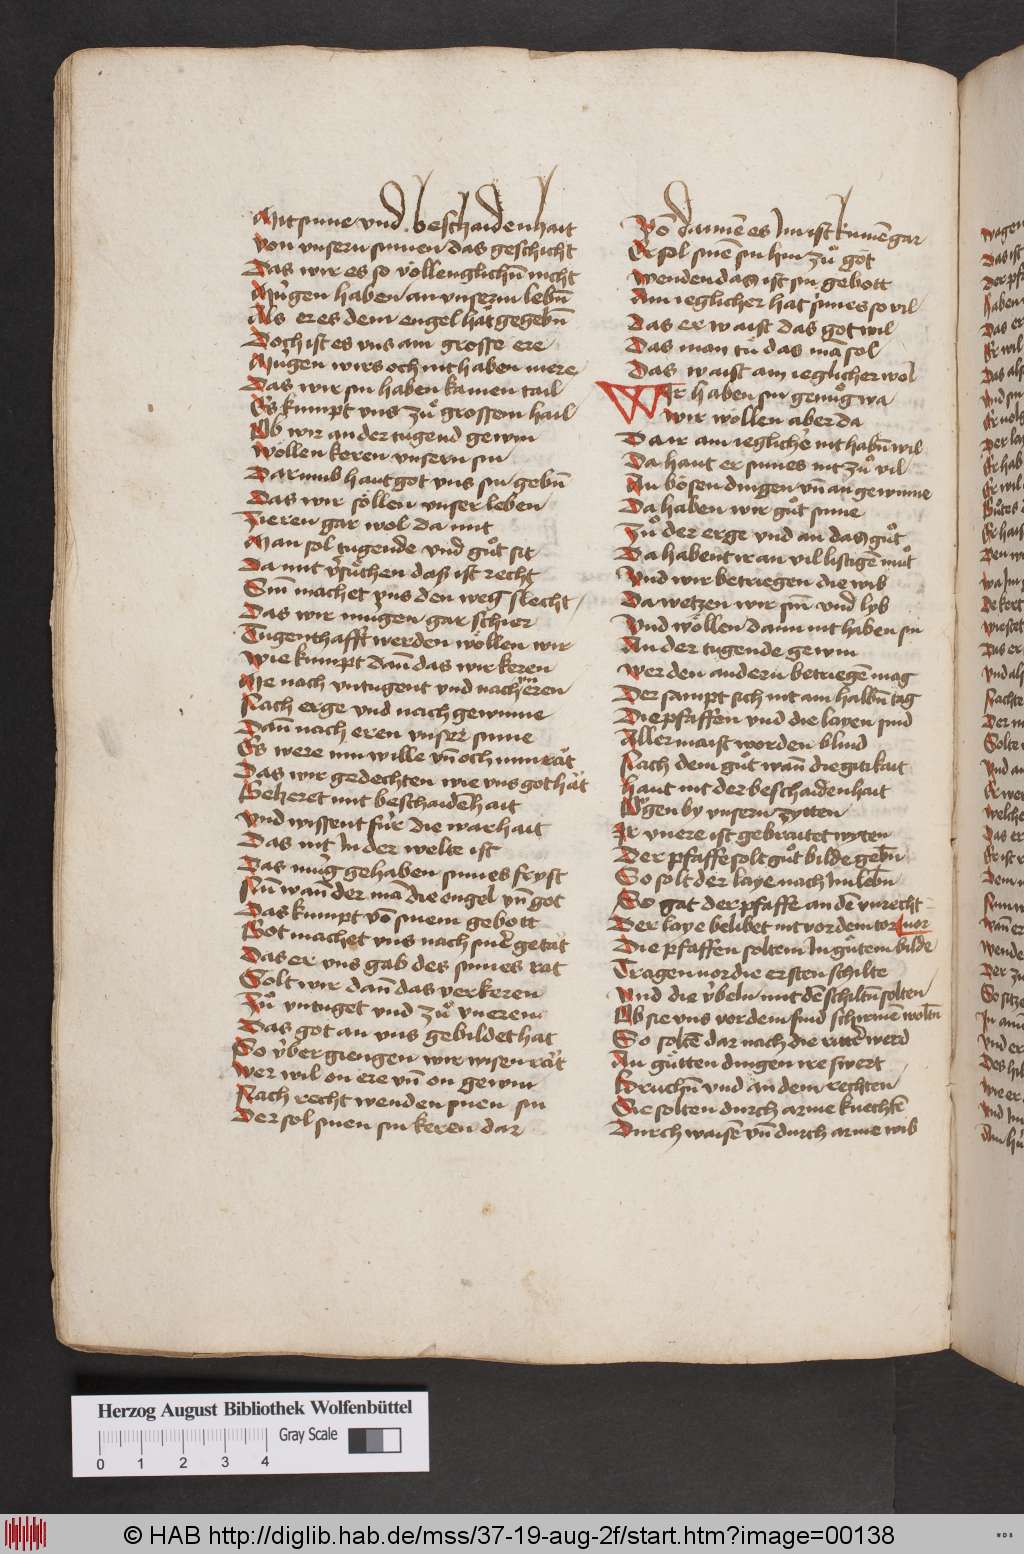 Mit sinne vnd beschaidenhait
von vnsern sinnen das geschicht
Das wir es so vollenglichn̄ nicht
Mu̇gen haben an vnserm lebn̄
Als er es dem engel hat gegebn̄
Doch ist es vns ain grosse ere
Mu̇gen wirs och nit haben mere
Das wir sin haben kainen tail
Es kumpt vns zuͦ grossem hail
Ob wir an der tugend gewin
wollen keren vnsern sin
Darumb haut got vns sin gebn̄
Das wir söllen vnser leben
Zieren gar wol da mit
Man sol tugende vnd guͦt sit
Da mit v̇suͦchen das ist recht
Sin̄ machet vns den weg slecht
Das wir mugen gar schier
Tugenthafft werden wöllen wir
wie kumpt dan̄ das wir keren
Me nach vntugent vnd nach eren
Nach erge vnd nach gewinne
Dan̄ nach eren vnser sinne
Es were min wille vn̄ och min rät
Das wir gedechten wie vns got hät
Geheret mit beschaidēhait
vnd wissent fu̇r die warhait
Das nit In der welte ist
Das mu̇g gehaben sinnes fryst
Nu̇ wan̄ der mā die engel vn̄ got
Das kumpt vō sinem gebott
Got machet vns nach sinr̄ getät
Das er vns gab des sinnes rat
Solt wir dan̄ das verkeren
Zuͦ vntuget vnd zuͦ vneren
Das got an vns gebildet hat
So v̇ber giengen wir wisen rät
wer wil on ere vn̄ on gewin
Nach recht wenden sinen sin
Der sol sinen sin keren dar
Vō dannē es Im ist kumē gar
Er sol sinē sin hin zuͦ got
wenden das ist sin gebott
Ain ieglicher hat sinnes so vil
Das er waist das got wil
Das man tuͦ das mā sol
Das waist ain ieglicher wol
Wir haben sin genuͦg wa
wir wöllen aber da
Da ir ain ieglichē nit habn̄ wil
Da haut er sinnes nit zuͦ vil
An bösen dingen vn̄ an gewinne
Da haben wir guͦt sinne
Zuͦ der erge vnd an das guͦt
Da habent ir an vil listigē muͦt
Vnd wir betriegen die wib
Da wetzen wir sin̄ vnd lyb
Vnd wöllen dann nit haben sin
An der tugende gewin
wer den andern betriegē mag
Der sampt sich nit ain halbn̄ tag
Die pfaffen vnd die layen sind
Aller maist worden blind
Nach dem guͦt wan̄ die gitikait
haut nit der beschaidenhait
Mu̇gen by vnsern zytten
Ir vnere ist gebraitet wyten
Der pfaffe solt guͦt bilde gebn̄
So solt der laye nach Im lebn̄
So gat der pfaffe an dē vnrecht
Der laye belibet nit vor dem tor vor
Die pfaffen soltem In guͦtem bilde
Tragen vor die ersten schilte
Vnd die v̇beln mit dē schiltn̄ solten
Ob sie vns vor dem find schirmē woltn̄
So soltē dar nach die rittr̄ werd
An guͦtten dingen ire swert
bruchn̄ vnd an dem rechten
Sie solten durch arme knechtē
Durch waisē vn̄ durch arme wib
Herzog August Bibliothek Wolfenbüttel
Gray Scale
0 1 2 3 4
© HAB http://diglib.hab.de/mss/37-19-aug-2f/start.htm?image=00138